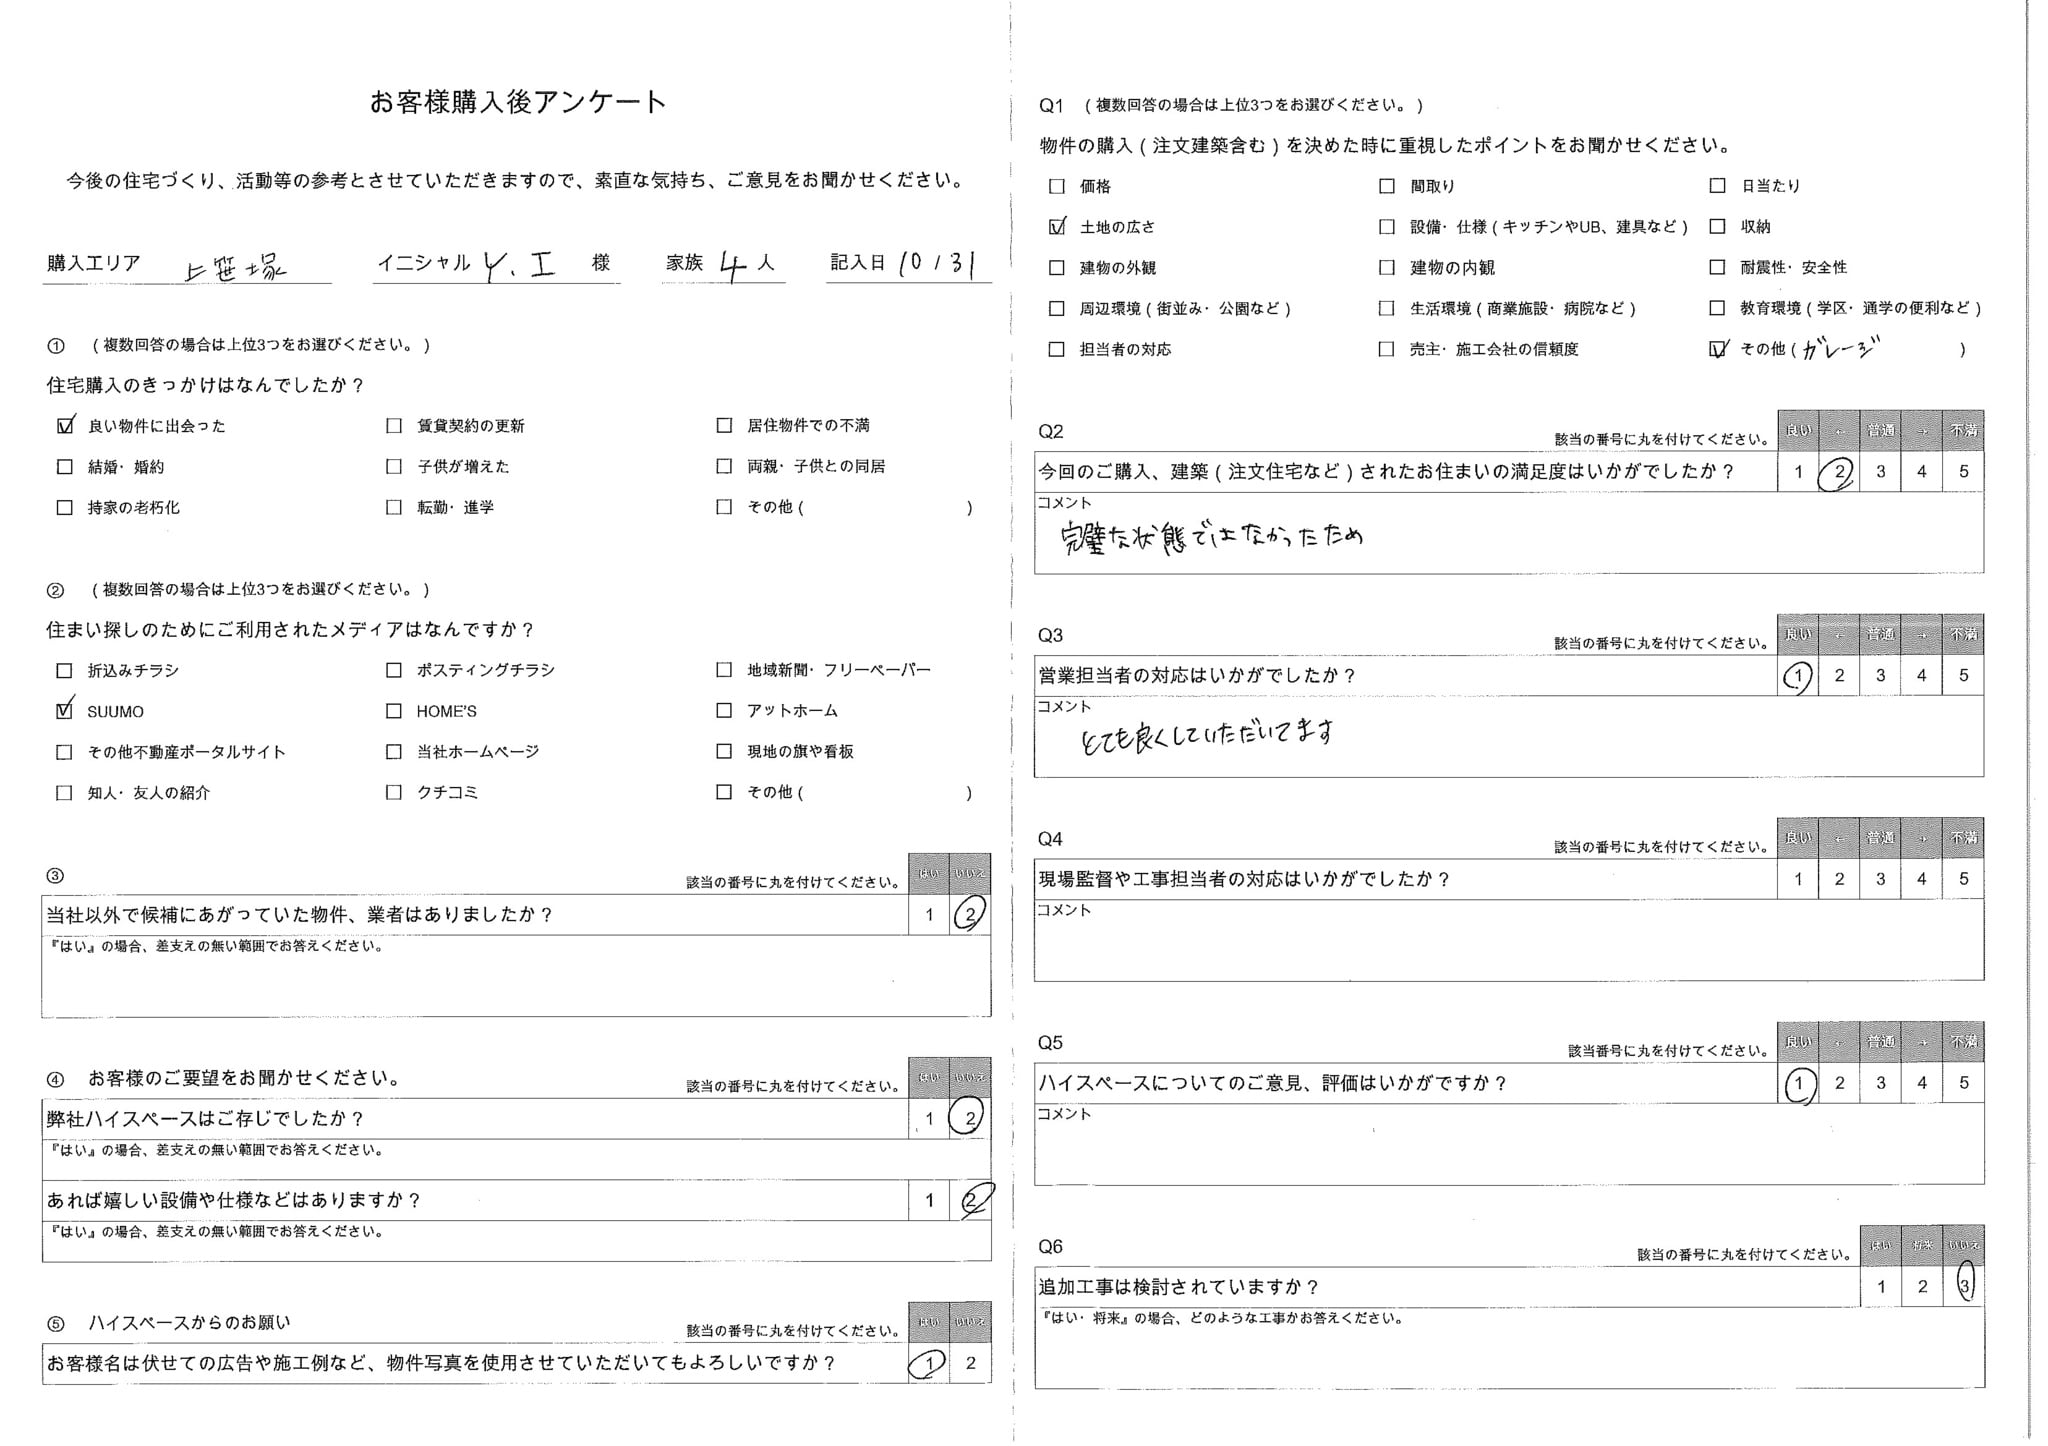 お客様購入後アンケート
今後の住宅づくり、活動等の参考とさせていただきますので、素直な気持ち、ご意見をお聞かせください。
購入エリア 上笹塚 イニシャル Y.I 様 家族 4 人 記入日 10/31
① (複数回答の場合は上位3つをお選びください。)
住宅購入のきっかけはなんでしたか？
☑ 良い物件に出会った □ 賃貸契約の更新 □ 居住物件での不満
□ 結婚・婚約 □ 子供が増えた □ 両親・子供との同居
□ 持家の老朽化 □ 転勤・進学 □ その他( )
② (複数回答の場合は上位3つをお選びください。)
住まい探しのためにご利用されたメディアはなんですか？
□ 折込みチラシ □ ポスティングチラシ □ 地域新聞・フリーペーパー
☑ SUUMO □ HOME'S □ アットホーム
□ その他不動産ポータルサイト □ 当社ホームページ □ 現地の旗や看板
□ 知人・友人の紹介 □ クチコミ □ その他( )
③ 該当の番号に丸を付けてください。 はい いいえ
当社以外で候補にあがっていた物件、業者はありましたか？ 1 2
『はい』の場合、差支えの無い範囲でお答えください。
④ お客様のご要望をお聞かせください。 該当の番号に丸を付けてください。 はい いいえ
弊社ハイスペースはご存じでしたか？ 1 2
『はい』の場合、差支えの無い範囲でお答えください。
あれば嬉しい設備や仕様などはありますか？ 1 2
『はい』の場合、差支えの無い範囲でお答えください。
⑤ ハイスペースからのお願い 該当の番号に丸を付けてください。 はい いいえ
お客様名は伏せての広告や施工例など、物件写真を使用させていただいてもよろしいですか？ 1 2
Q1 (複数回答の場合は上位3つをお選びください。)
物件の購入(注文建築含む)を決めた時に重視したポイントをお聞かせください。
□ 価格 □ 間取り □ 日当たり
☑ 土地の広さ □ 設備・仕様(キッチンやUB、建具など) □ 収納
□ 建物の外観 □ 建物の内観 □ 耐震性・安全性
□ 周辺環境(街並み・公園など) □ 生活環境(商業施設・病院など) □ 教育環境(学区・通学の便利など)
□ 担当者の対応 □ 売主・施工会社の信頼度 ☑ その他(ガレージ )
Q2 該当の番号に丸を付けてください。 良い ← 普通 → 不満
今回のご購入、建築(注文住宅など)されたお住まいの満足度はいかがでしたか？ 1 2 3 4 5
コメント
完璧な状態ではなかったため
Q3 該当の番号に丸を付けてください。 良い ← 普通 → 不満
営業担当者の対応はいかがでしたか？ 1 2 3 4 5
コメント
とても良くしていただいてます
Q4 該当の番号に丸を付けてください。 良い ← 普通 → 不満
現場監督や工事担当者の対応はいかがでしたか？ 1 2 3 4 5
コメント
Q5 該当番号に丸を付けてください。 良い ← 普通 → 不満
ハイスペースについてのご意見、評価はいかがですか？ 1 2 3 4 5
コメント
Q6 該当の番号に丸を付けてください。 はい 将来 いいえ
追加工事は検討されていますか？ 1 2 3
『はい・将来』の場合、どのような工事かお答えください。